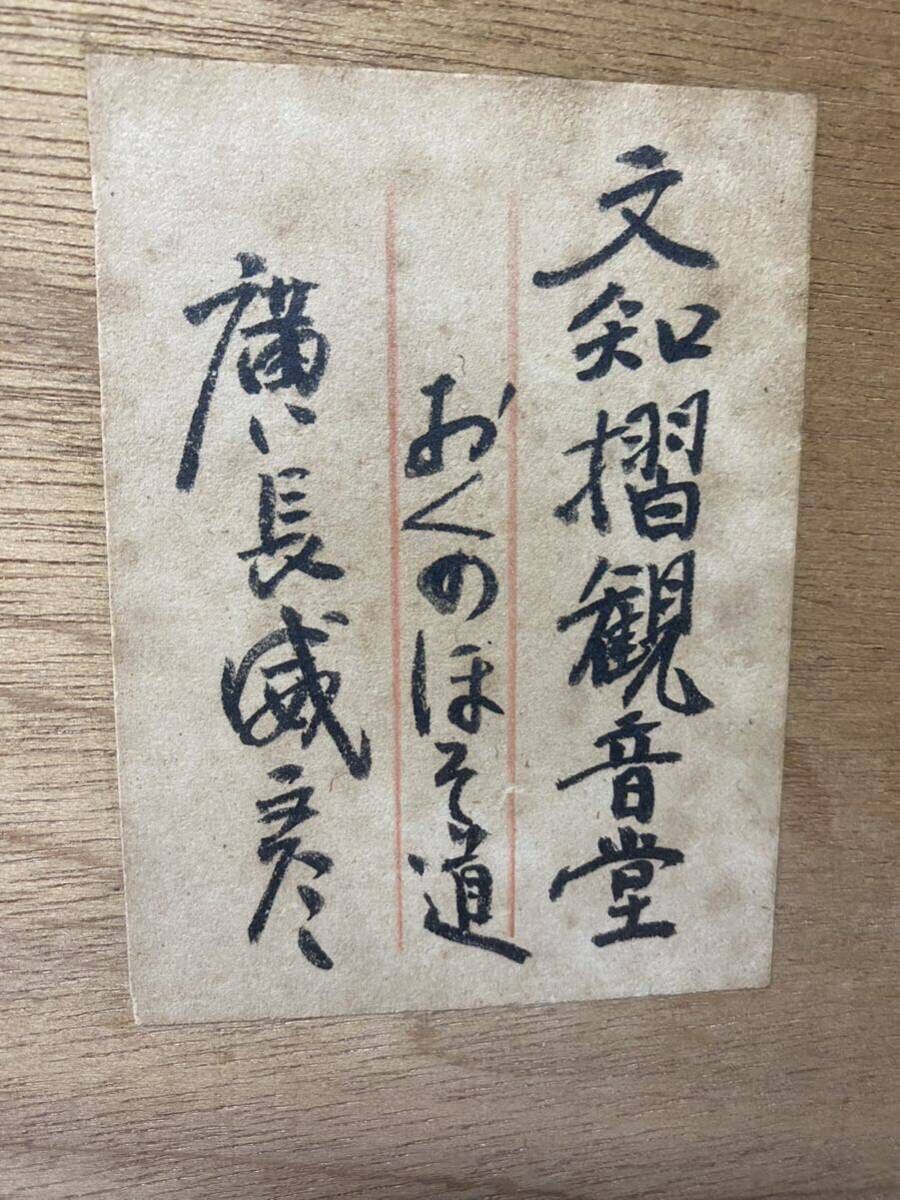 文知摺観音堂
おくのほそ道
廣長威彦